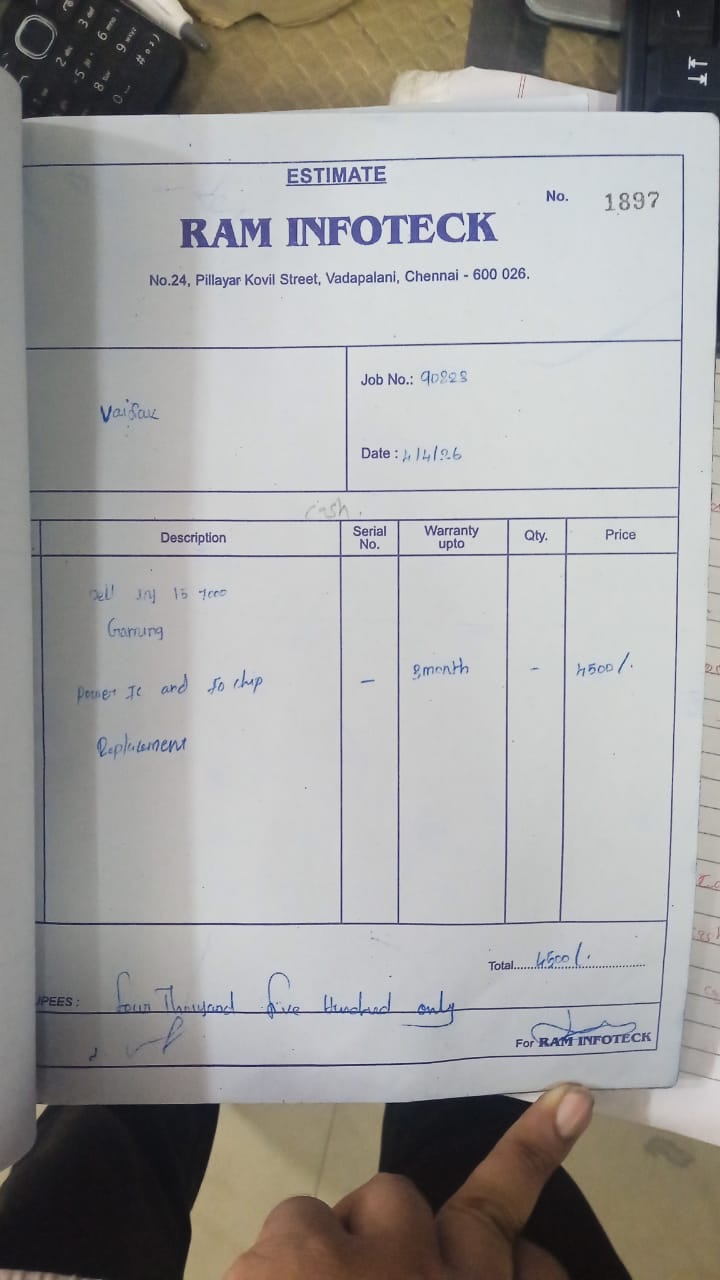 ESTIMATE
No. 1897
RAM INFOTECK
No.24, Pillayar Kovil Street, Vadapalani, Chennai - 600 026.
Job No.: 90823
Vaisak
Date : 4/4/26
cash.
Description Serial No. Warranty upto Qty. Price
Dell inj 15 7000
Gaming
Power Ic and Io chip - 3month - 4500/.
Replacement
Total......4500/.
UPEES : four Thousand five Hundred only
For RAM INFOTECK